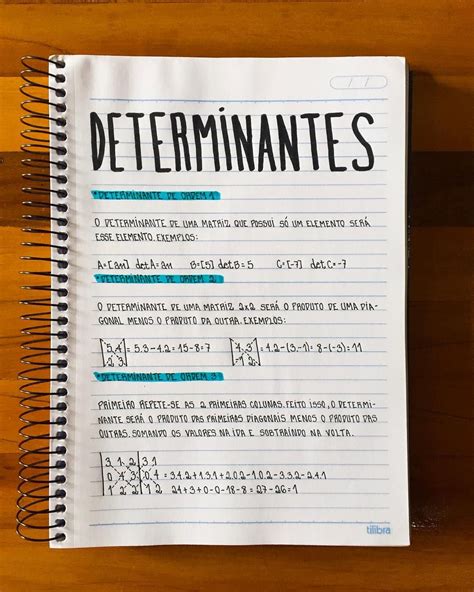 DETERMINANTES
*DETERMINANTE DE ORDEM 1
O DETERMINANTE DE UMA MATRIZ QUE POSSUI SÓ UM ELEMENTO SERÁ
ESSE ELEMENTO. EXEMPLOS:
A=[a11] det A=a11 B=[5] det B=5 C=[-7] det C=-7
*DETERMINANTE DE ORDEM 2
O DETERMINANTE DE UMA MATRIZ 2x2 SERÁ O PRODUTO DE UMA DIA-
GONAL MENOS O PRODUTO DA OUTRA. EXEMPLOS:
|5 4| = 5.3-4.2=15-8=7 |4 3| = 4.2-(3.-1)=8-(-3)=11
|2 3| |-1 2|
*DETERMINANTE DE ORDEM 3
PRIMEIRO REPETE-SE AS 2 PRIMEIRAS COLUNAS. FEITO ISSO, O DETERMI-
NANTE SERÁ O PRODUTO DAS PRIMEIRAS DIAGONAIS MENOS O PRODUTO DAS
OUTRAS. SOMANDO OS VALORES NA IDA E SOBTRAINDO NA VOLTA.
|3 1 2|3 1
|0 4 3|0 4 = 3.4.2+1.3.1+2.0.2-1.0.2-3.3.2-2.4.1
|1 2 2|1 2 24+3+0-0-18-8=27-26=1
tilibra